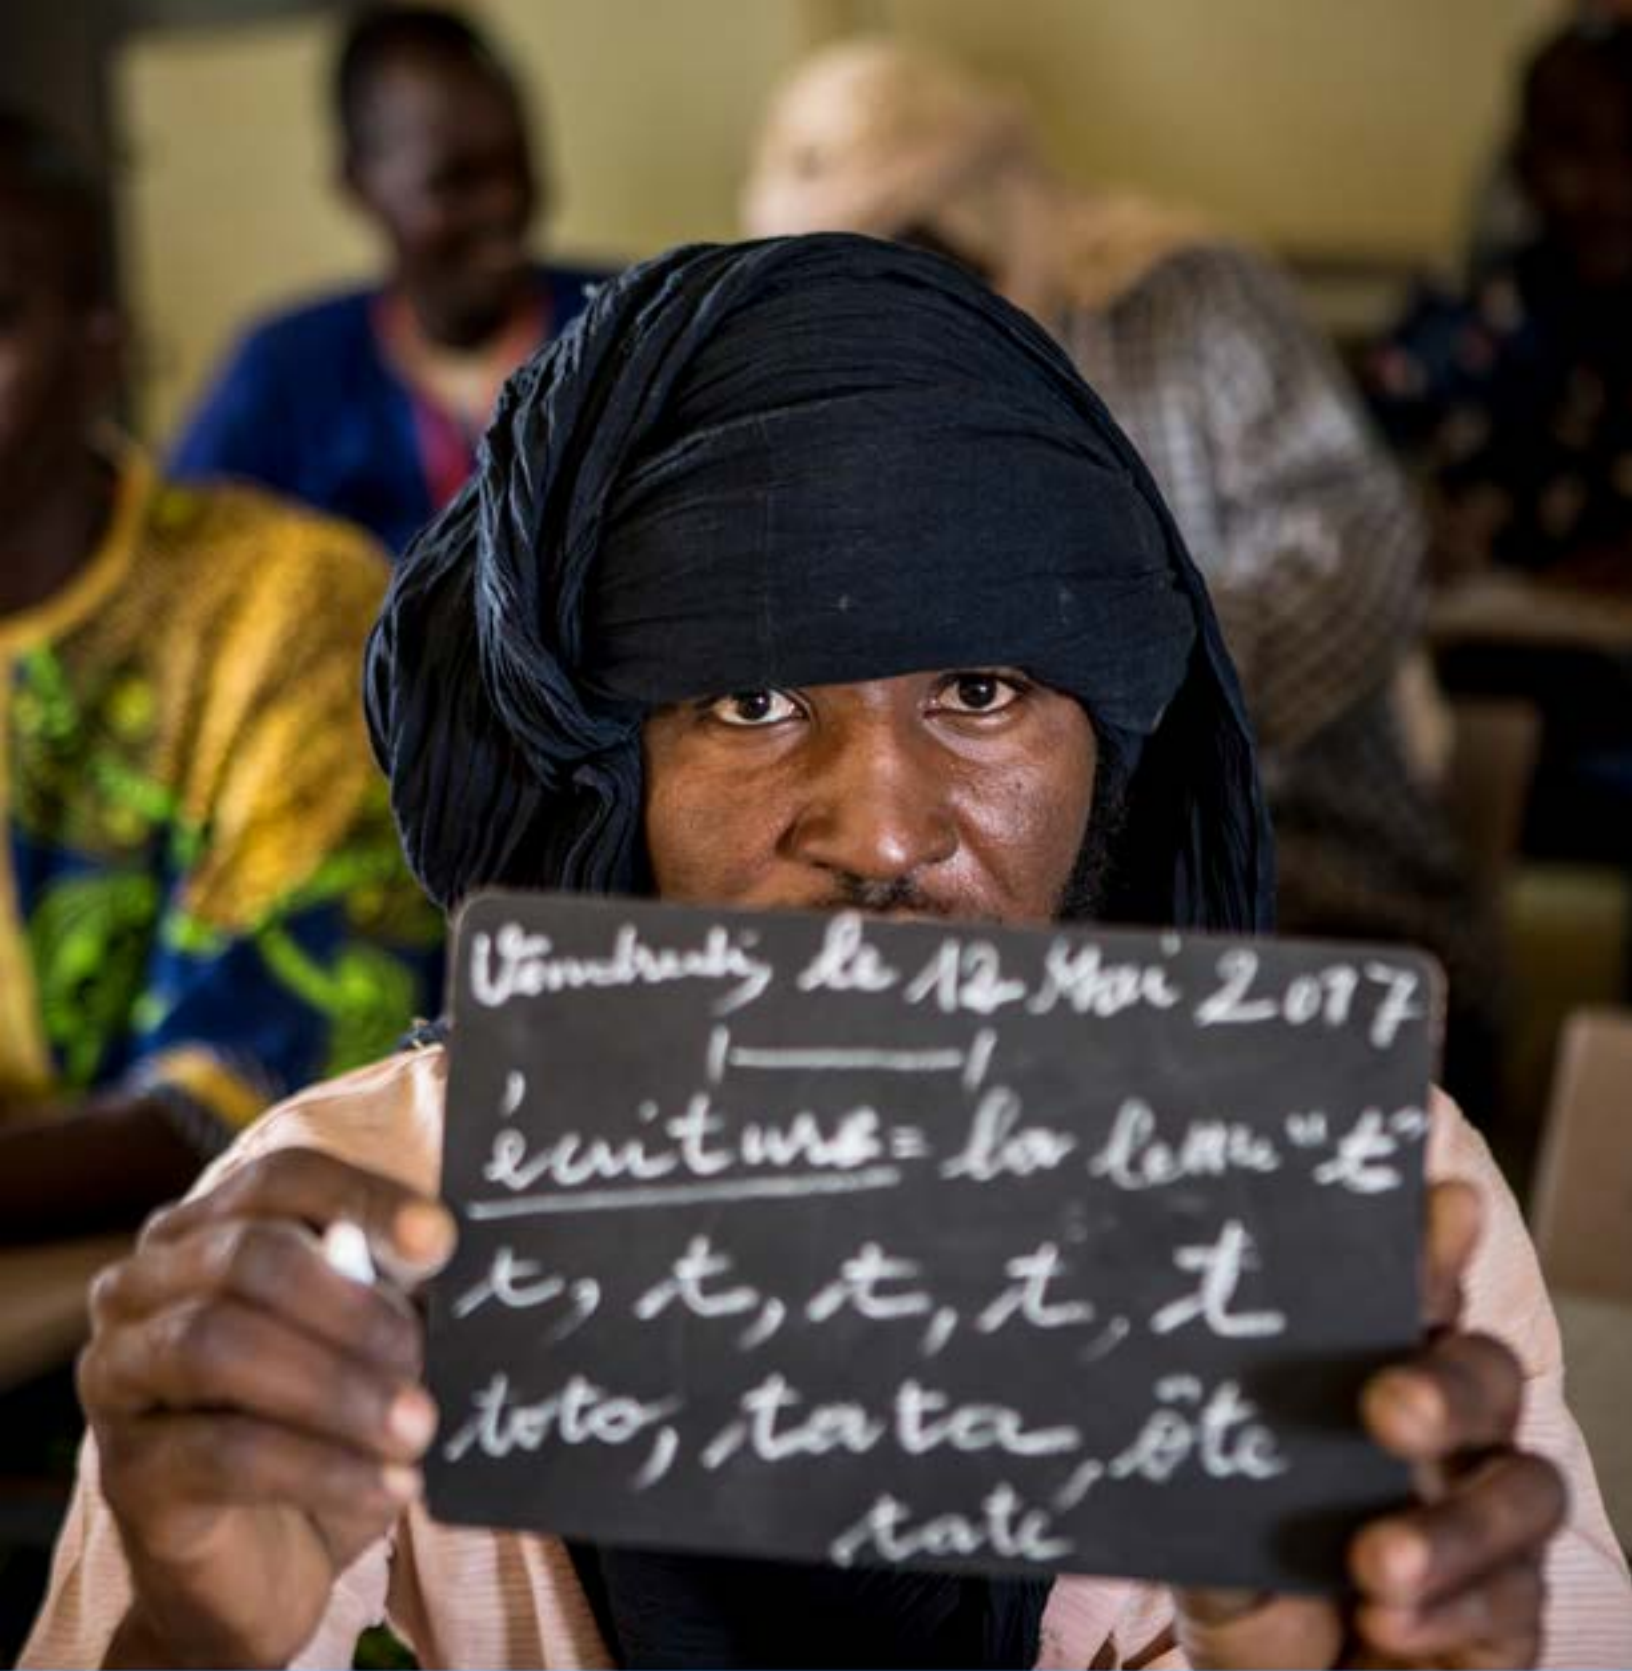 Vendredi, le 12 Mai 2017
écriture = la lettre "t"
t, t, t, t, t
toto, tata, ôte
tate